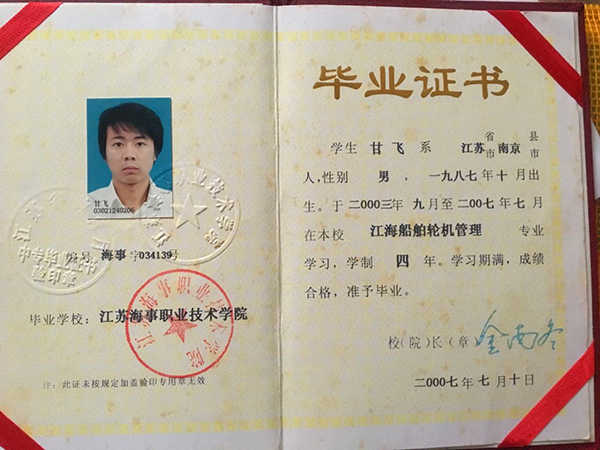 甘飞
03021240206
编号 海事 字034139号
毕业学校：江苏海事职业技术学院
江苏海事职业技术学院
注：此证未按规定加盖验印专用章无效
毕业证书
学生 甘飞 系 江苏 省市 南京 县市
人，性别 男 ，一九八七年十月出
生。于二000三年 九月至二00七年七月
在本校 江海船舶轮机管理 专业
学习，学制 四 年。学习期满，成绩
合格，准予毕业。
校(院)长(章)
二000七年七月十日